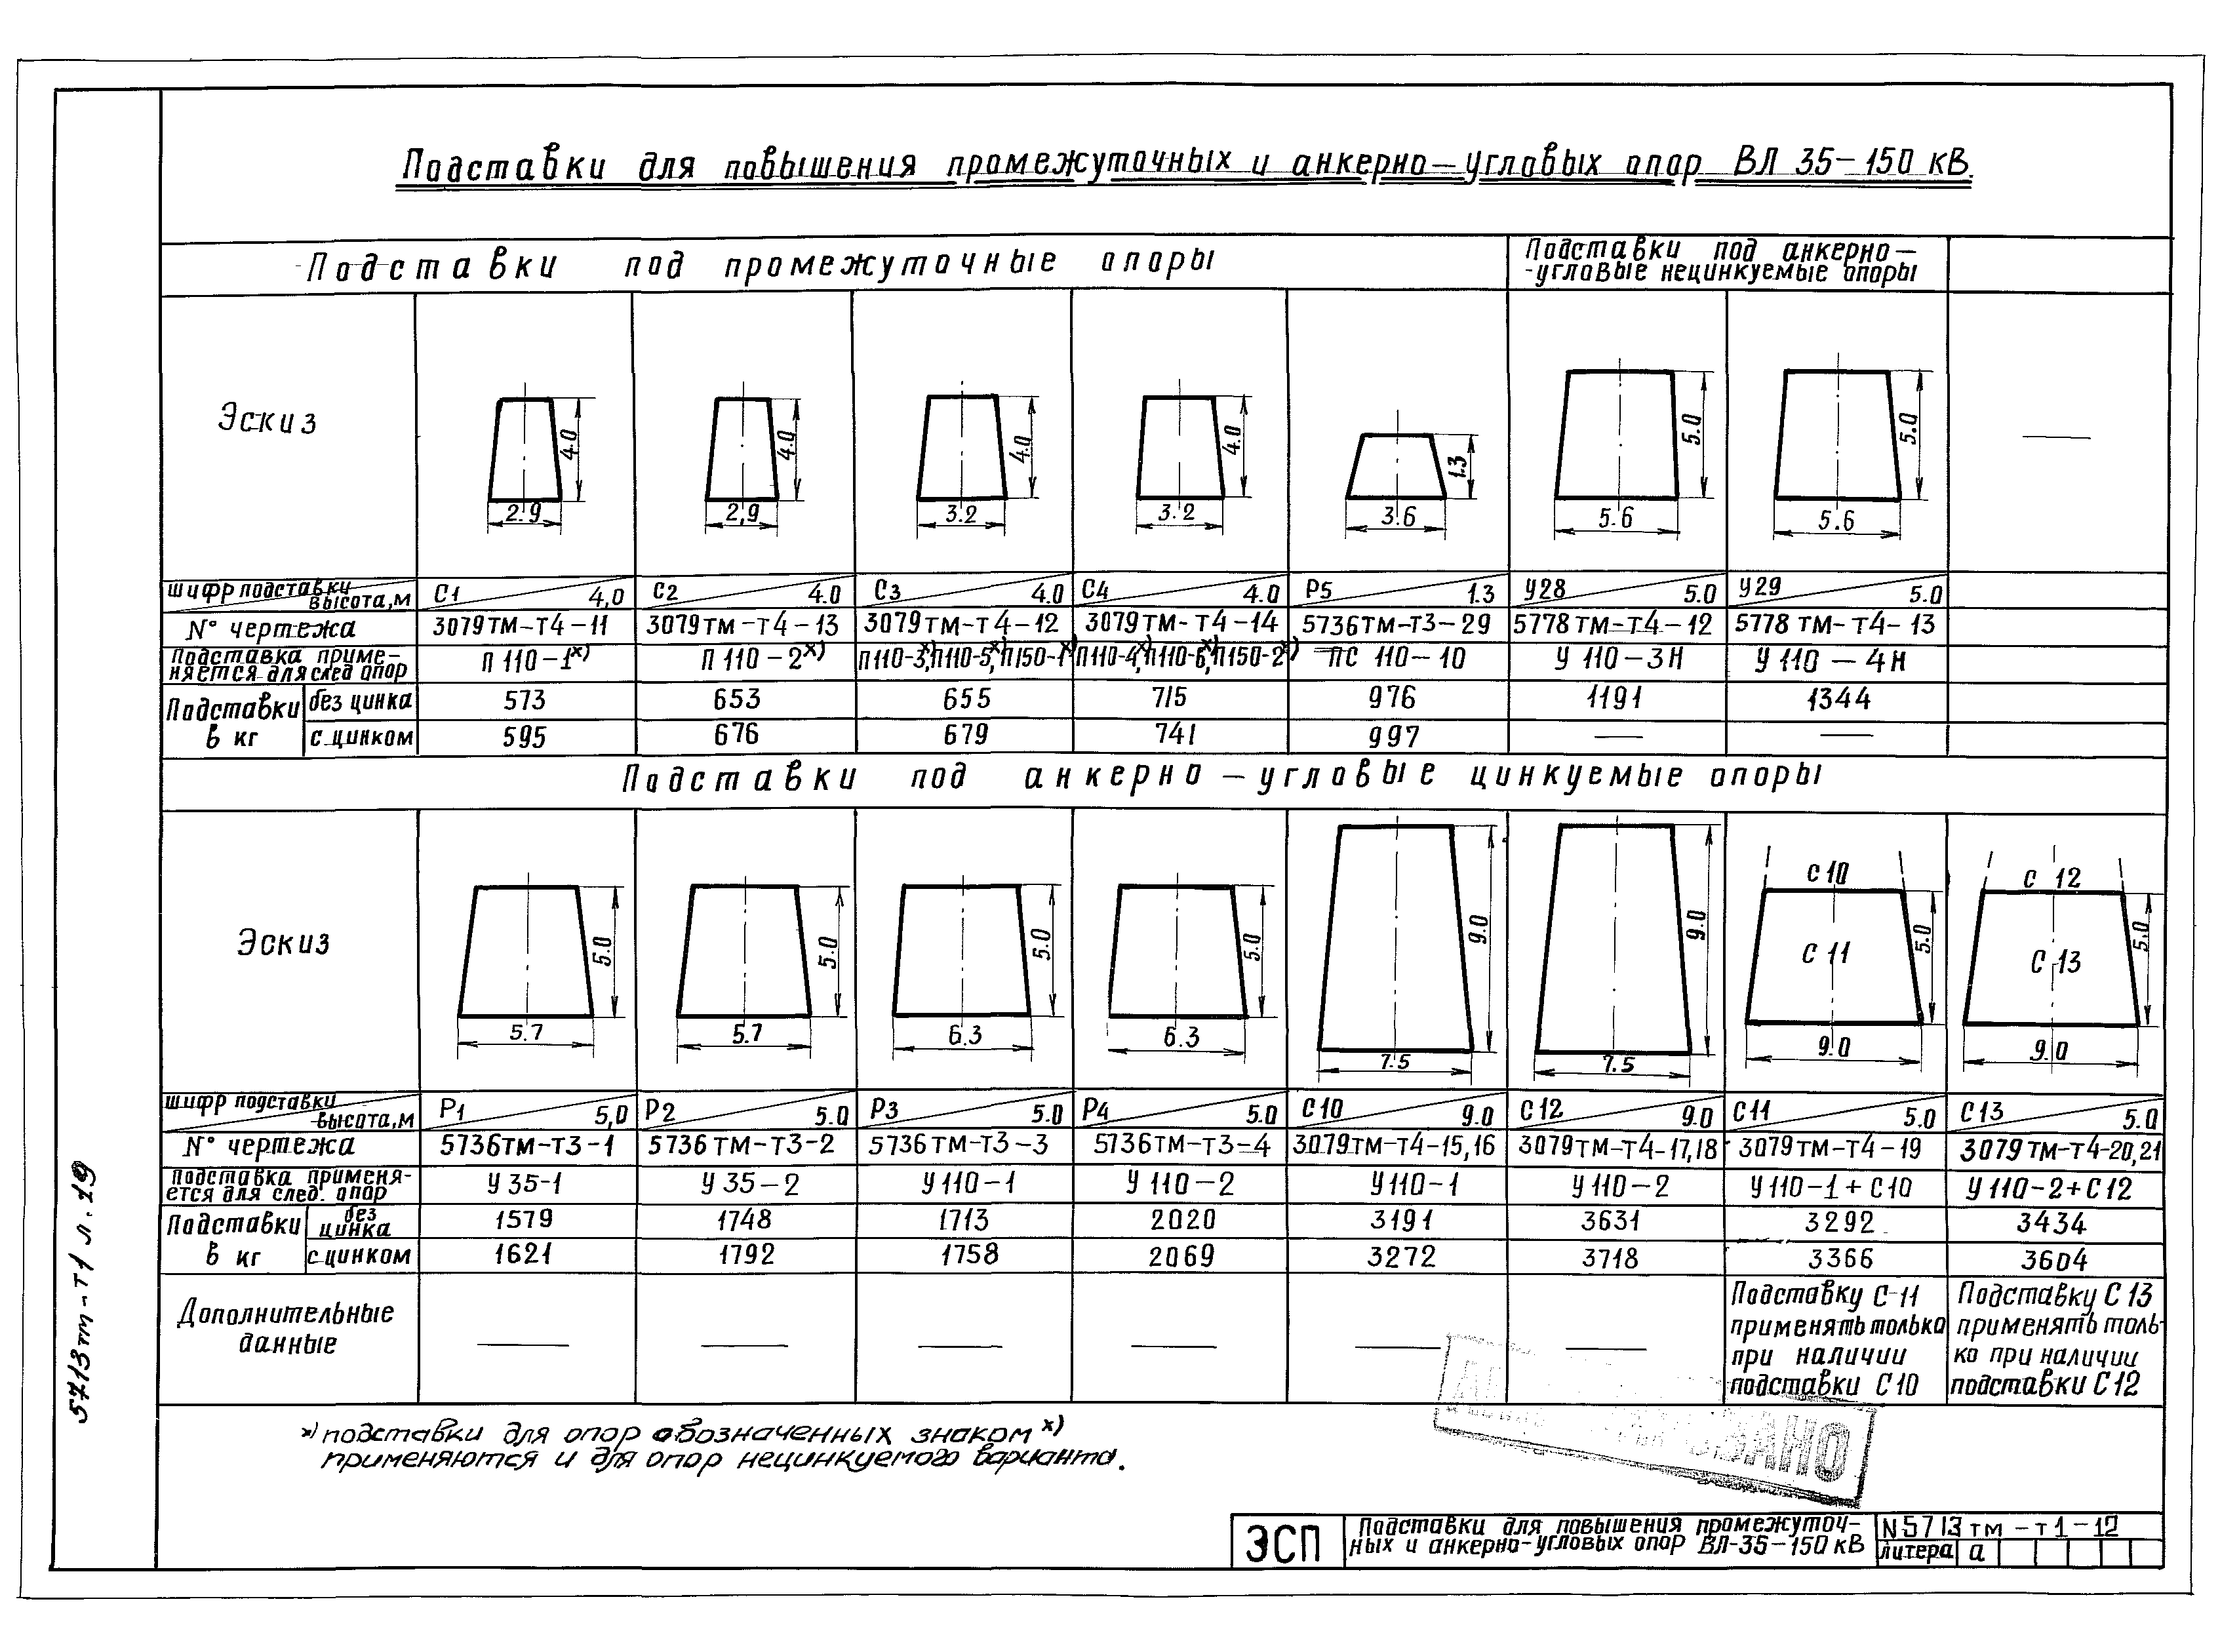 Подставки для повышения промежуточных и анкерно-угловых опор ВЛ 35-150 кВ.
Подставки под промежуточные опоры
Подставки под анкерно-
-угловые нецинкуемые опоры
Эскиз
4.0 4.0 4.0 4.0 1.3 5.0 5.0 —
2.9 2,9 3.2 3.2 3.6 5.6 5.6
шифр подставки
высота,м
С1 4,0 С2 4.0 С3 4.0 С4 4.0 Р5 1.3 У28 5.0 У29 5.0
N° чертежа 3079тм-т4-11 3079тм-т4-13 3079тм-т4-12 3079тм-т4-14 5736тм-т3-29 5778тм-т4-12 5778тм-т4-13
Подставка приме-
няется для след опор
П110-1х) П110-2х) П110-3х), П110-5х), П150-1х) П110-4х), П110-6х), П150-2х) ПС 110-10 У 110-3Н У 110-4Н
Подставки в кг
без цинка 573 653 655 715 976 1191 1344
с цинком 595 676 679 741 997 — —
Подставки под анкерно-угловые цинкуемые опоры
Эскиз
5.0 5.0 5.0 5.0 9.0 9.0 С 10 С 11 5.0 С 12 С 13 5.0
5.7 5.7 6.3 6.3 7.5 7.5 9.0 9.0
шифр подставки
высота,м
Р1 5,0 Р2 5.0 Р3 5.0 Р4 5.0 С10 9.0 С12 9.0 С11 5.0 С13 5.0
N° чертежа 5736тм-т3-1 5736тм-т3-2 5736тм-т3-3 5736тм-т3-4 3079тм-т4-15,16 3079тм-т4-17,18 3079тм-т4-19 3079тм-т4-20,21
Подставка применя-
ется для след. опор
У 35-1 У 35-2 У110-1 У 110-2 У110-1 У110-2 У110-1+С10 У110-2+С12
Подставки в кг
без цинка 1579 1748 1713 2020 3191 3631 3292 3434
с цинком 1621 1792 1758 2069 3272 3718 3366 3604
Дополнительные
данные
— — — — — —
Подставку С-11
применять только
при наличии
подставки С10
Подставку С13
применять толь-
ко при наличии
подставки С12
х) подставки для опор обозначенных знаком х)
применяются и для опор нецинкуемого варианта.
5713тм-т1 л.19
ЭСП
Подставки для повышения промежуточ-
ных и анкерно-угловых опор ВЛ-35-150кВ
N5713тм-т1-12
литера а